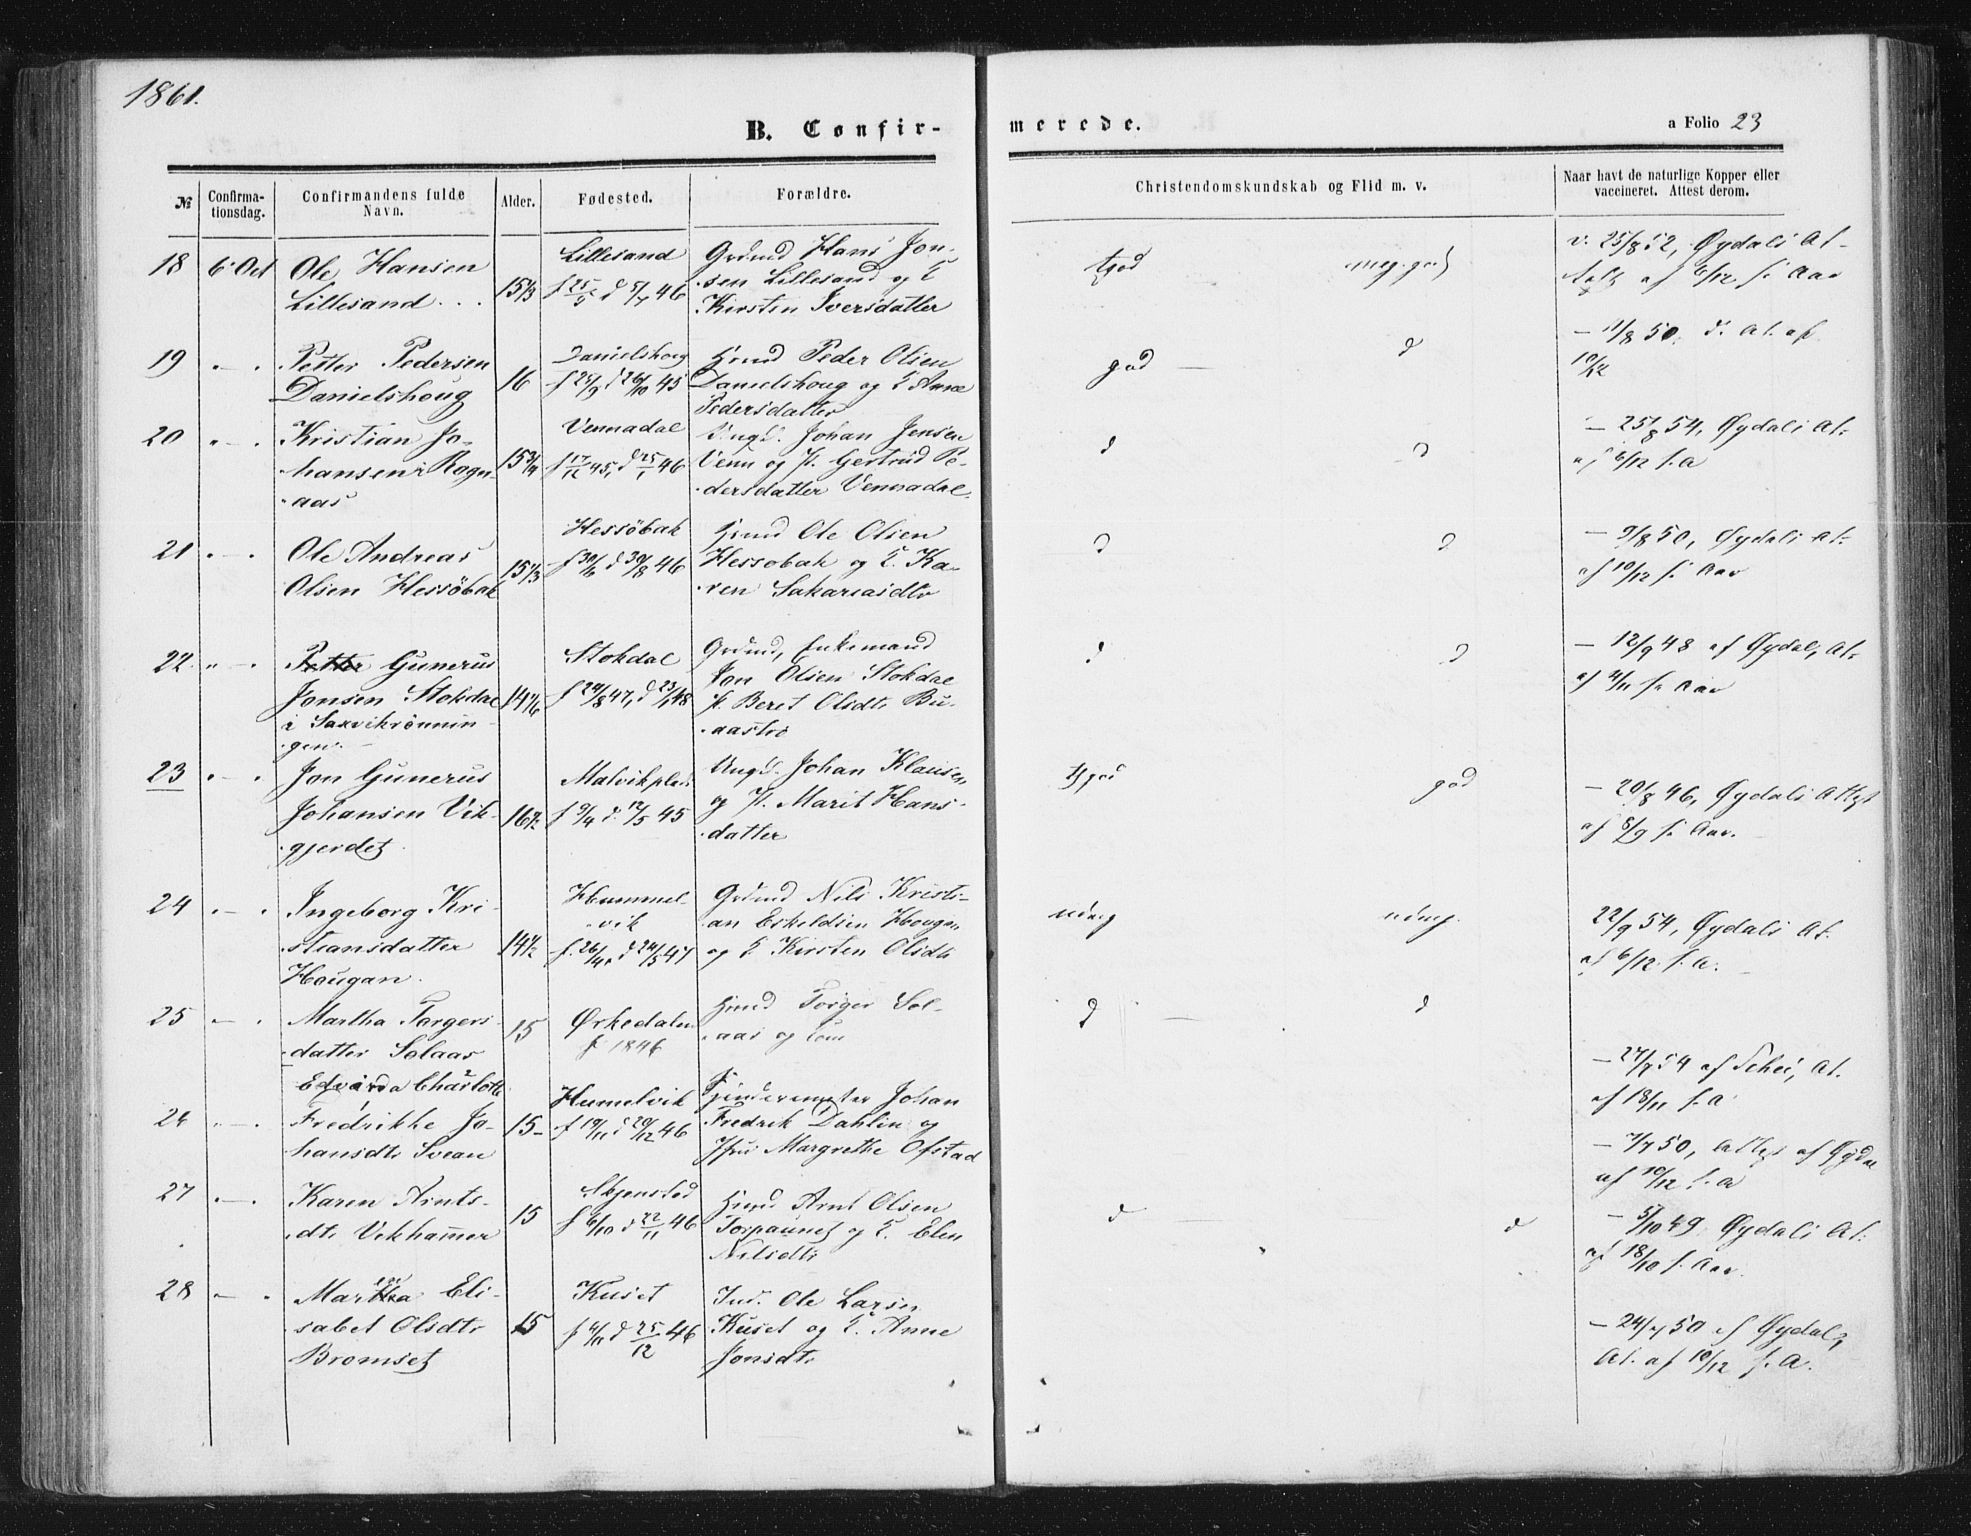 1861.
B. Confir-
merede.
a Folio 23
№
Confirma-
tionsdag.
Confirmandens fulde
Navn.
Alder.
Fødested.
Forældre.
Christendomskundskab og Flid m. v.
Naar havt de naturlige Kopper eller
vaccineret. Attest derom.
18 6. Oct Ole Hansen
Lillesand . . .
15⅓
Lillesand
f 25/5 d 5/7 46
Grdmd Hans Jon-
sen Lillesand og E
Kirsten Iversdatter
tgod meg. god
v. 25/8 52, Øydals At-
af 6/12 f. Aar
19 " — " Petter Pedersen
Danielshoug
16
Danielshoug
f 25/9 d 26/10 45
Hmd Peder Olsen
Danielshoug og E Anne
Pedersdatter
god — d
— 11/8 50. d. At. af
10/12
20 " — " Kristian Jo-
hansen i Rogn-
aas
15¾
Vennadal
f 17/12 45, d 25/1 46
Ungk. Johan Jensen
Venn og P. Gertrud Pe-
dersdatter Vennadal
d d
— 25/8 54, Øydals At.
af 6/12 f. A
21 " — " Ole Andreas
Olsen Hessöbak
15⅓
Hessöbak
f 30/6 d 30/8 46
Hmd Ole Olsen
Hessobak og E. Ka-
ren Sakariasdtr
d d
— 9/8 50, Øydals At.
af 10/12 f. Aar
22 " — " Petter Gunerus
Jonsen Stokdal
i Saxvikrönnin-
gen.
14⅙
Stokdal
f 24/8 47, d 23/1 48
Grdmd, Enkemand
Jon Olsen Stokdal
P. Beret Olsdtr Bu-
aastrø
d d
— 12/9 48 af Øydal, At.
af 4/11 f. Aar
23 " — " Jon Gunerus
Johansen Vik-
gjerdet
16½
Malvikplads
f 9/4 d. 12/5 45
Ungk. Johan Klausen
og P. Marit Hans-
datter
tgod god
— 20/8 46, Øydals Attest
af 8/9 f. Aar.
24 " — " Ingeborg Kri-
stiansdatter
Hougan.
14½
Hummel-
vik
f. 26/4, d 24/5 47
Grdmd Nils Kristi-
an Eskildsen Hougan
og E Kirsten Olsdtr
udmg udmg.
22/9 54, Øydals At.
af 6/12 f. A.
25 " — " Martha Torgers-
datter Solaas
15
Ørkedalen
f 1846
Hmd Torger Sol-
aas og Kone
d — d
— 27/7 54 af Schei, At.
af 18/11 f. A
26 " — " Edvarda Charlotte
Fredrikke Jo-
hansdtr Svean
15-
Humelvik
f 19/11 d 20/12 46
Johan
Fredrik Dahlin og
Jfru Margrethe Ofstad
— 7/7 50, Attest af Øydal
af 10/12 f. A
27 " — " Karen Arnts-
dtr Vikhamer
15
Skjenstad
f 6/10 d 22/11 46
Hmd Arnt Olsen
Torpaunet og E. Elen
Nilsdtr
d — d
— 5/10 49 Øydals At.
af 18/10 f. Aar.
28 " — " Martha Eli-
sabet Olsdtr
Bromset
15
Kuset
f 4/11 d 25/12 46
Ind. Ole Larsen
Kuset og E. Anne
Jonsdtr
— 24/7 50 af Øydal,
At. af 10/12 f. A.